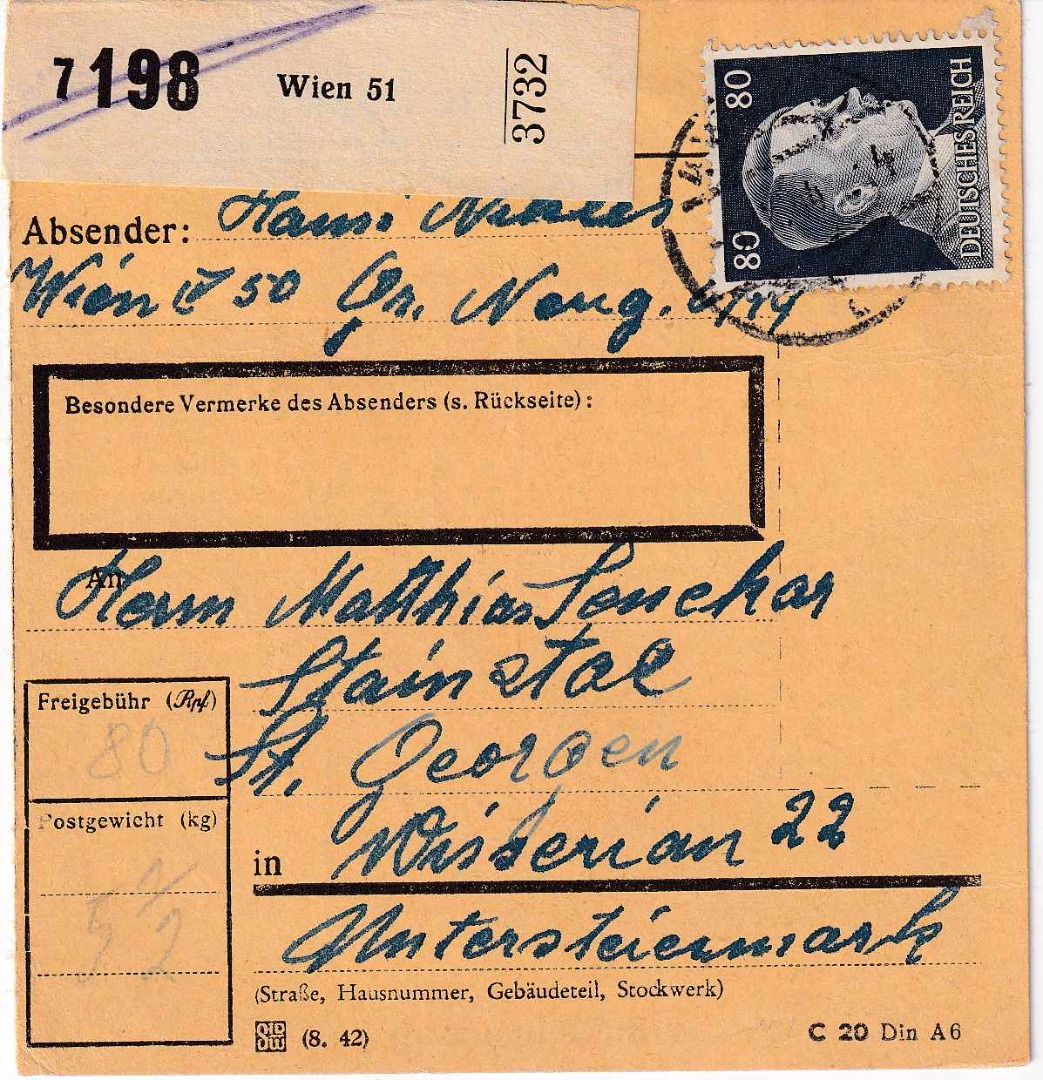 7 198 Wien 51 3732
80 80 DEUTSCHES REICH
Absender: Hansi
Wien 50 Gr. Neug.
Besondere Vermerke des Absenders (s. Rückseite):
An
Herrn Matthias
Stainztal
St. Georgen
Freigebühr (Rpf)
80
Postgewicht (kg)
5 1/2
in 22
Untersteiermark
(Straße, Hausnummer, Gebäudeteil, Stockwerk)
(8. 42) C 20 Din A6